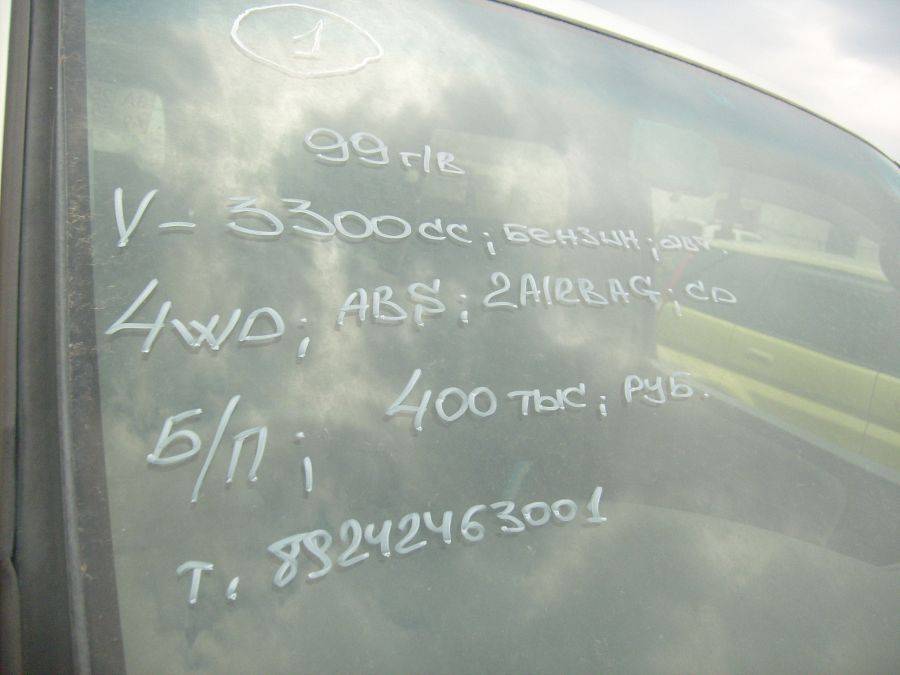 1
99 г/в
V - 3300 cc; бензин;
4WD; ABS; 2AIRBAG; CD
Б/П; 400 тыс; руб.
т. 89242463001